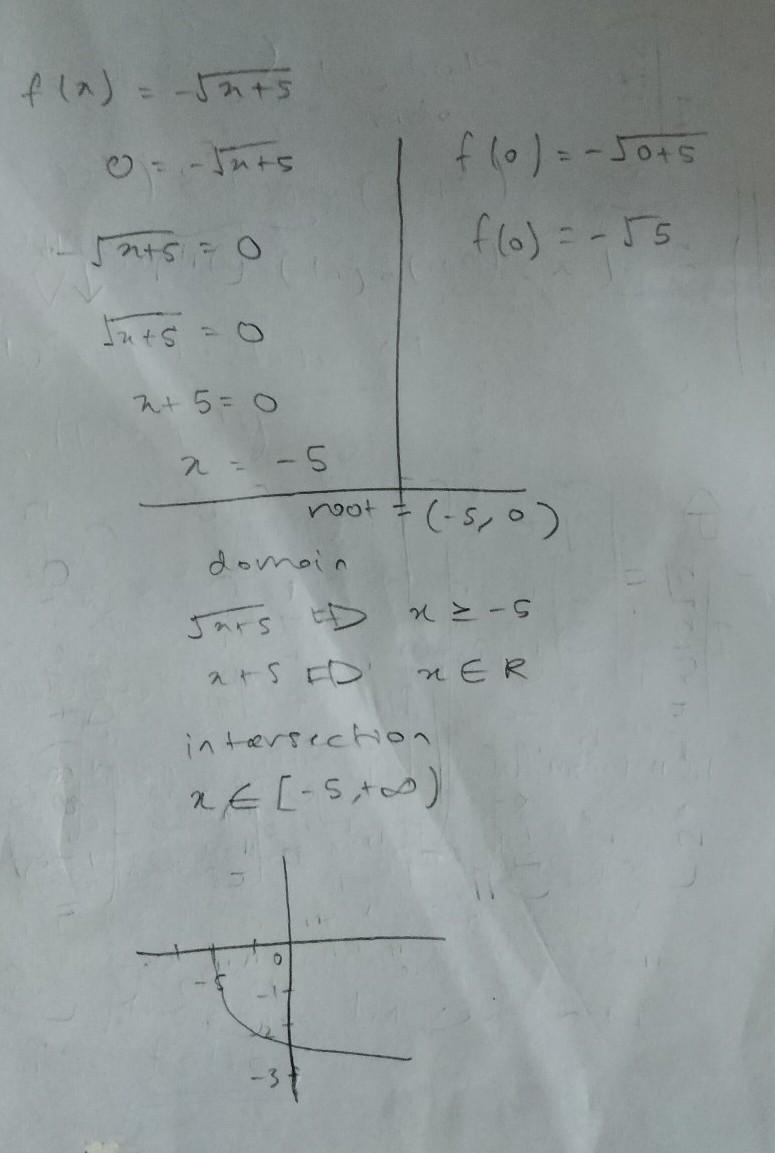 f(x) = -√x+5
0 = -√x+5
-√x+5 = 0
√x+5 = 0
x+5=0
x = -5
f(0)=-√0+5
f(0)=-√5
root = (-5, 0)
domain
√x+5 ⇒ x ≥ -5
x+5 ⇒ x ∈ R
intersection
x ∈ [-5,+∞)
-5
0
-1
-2
-3